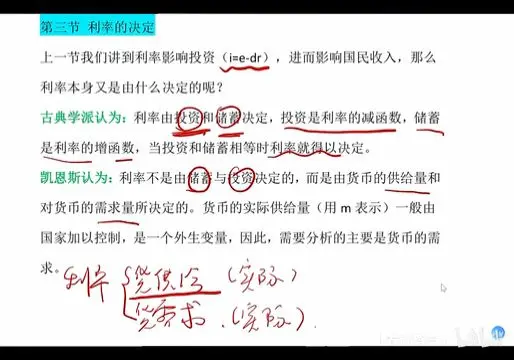 第三节 利率的决定
上一节我们讲到利率影响投资（i=e-dr），进而影响国民收入，那么
利率本身又是由什么决定的呢？
古典学派认为：利率由投资和储蓄决定，投资是利率的减函数，储蓄
是利率的增函数，当投资和储蓄相等时利率就得以决定。
凯恩斯认为：利率不是由储蓄与投资决定的，而是由货币的供给量和
对货币的需求量所决定的。货币的实际供给量（用 m 表示）一般由
国家加以控制，是一个外生变量，因此，需要分析的主要是货币的需
求。
利率
货供给（实际）
货需求（实际）